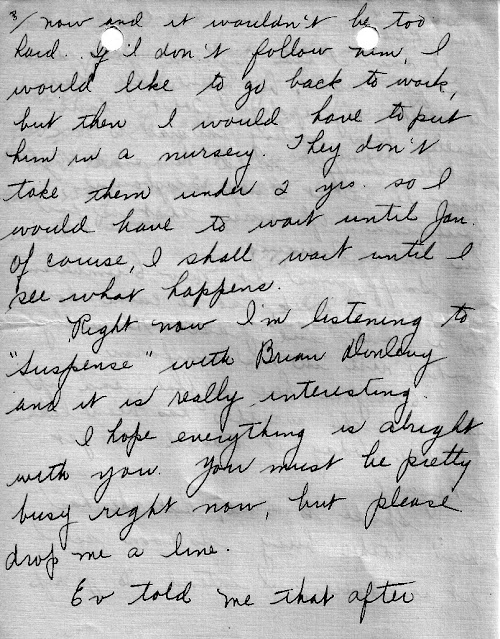 3/ now and it wouldn't be too
hard. If I don't follow him, I
would like to go back to work,
but then I would have to put
him in a nursery. They don't
take them under 2 yrs. so I
would have to wait until Jan.
Of course, I shall wait until I
see what happens.
Right now I'm listening to
"Suspense" with Brian Donlevy
and it is really interesting.
I hope everything is alright
with you. You must be pretty
busy right now, but please
drop me a line.
Ev told me that after